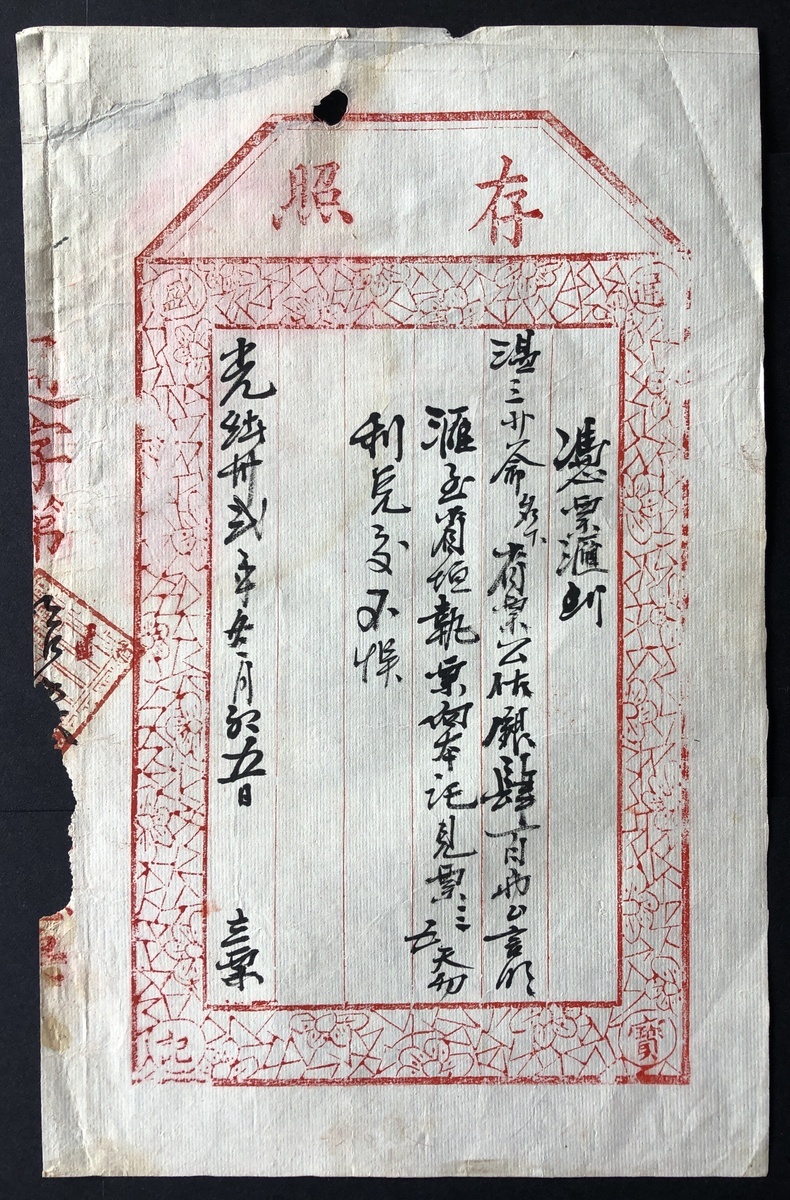 存照
通
盛
寶
記
憑票滙到
湛三廿爺名下省票公估銀肆百兩公言明
滙至省垣執票向本記見票三五天
利兌交不悞
光緒卅弍年 月初五日 立票
字第